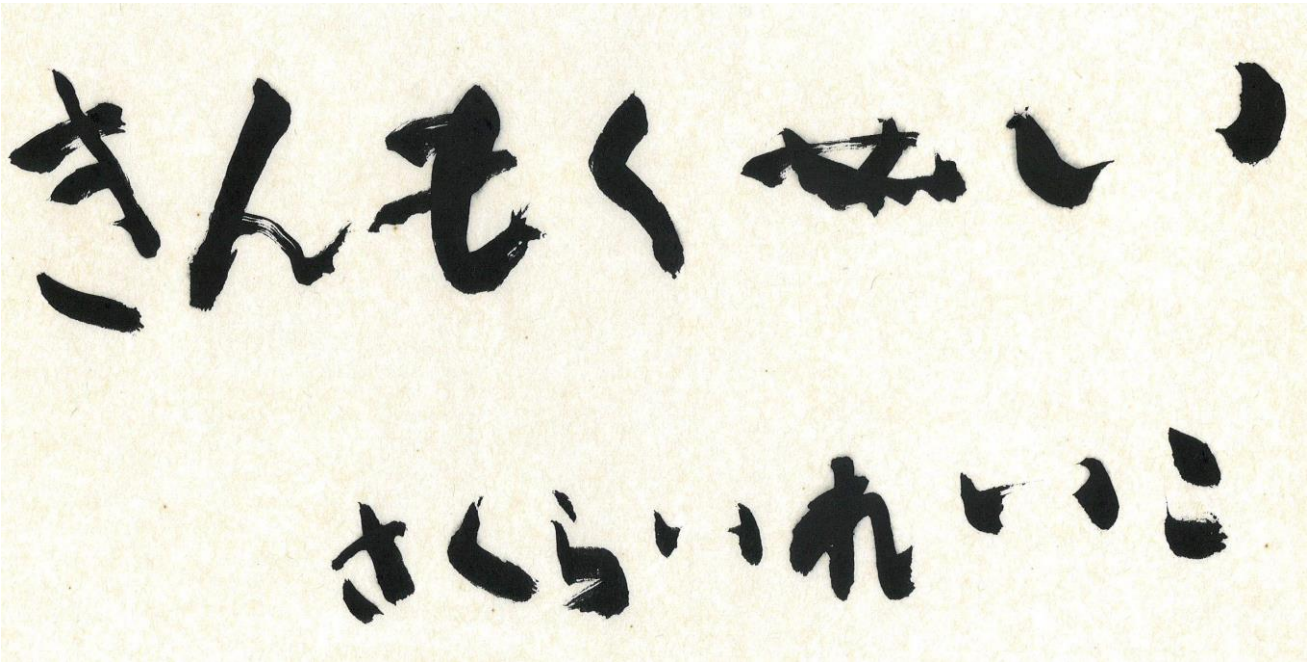 きんもくせい
さくらいれいこ